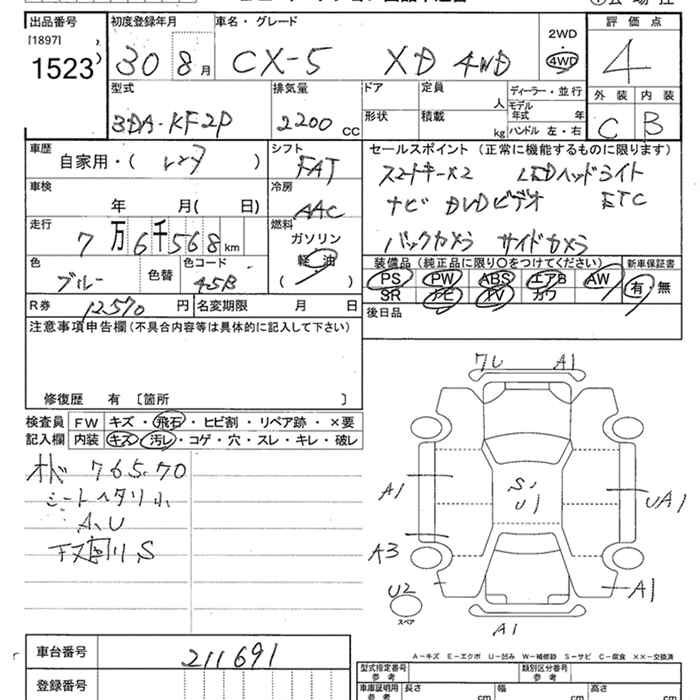 出品番号 初度登録年月 車名・グレード 2WD 評価点
[1897]
1523 30 8月 CX-5 XD 4WD 4WD 4
型式 排気量 ドア 定員 人 ディーラー・並行 外装 内装
3DA-KF2P 2200cc 形状 積載 kg モデル年式 年 ハンドル 左・右 C B
車歴 シフト セールスポイント (正常に機能するものに限ります)
自家用・( レンタ ) FAT スマートキーX2 LEDヘッドライト
車検 冷房 ナビ DVDビデオ ETC
年 月( 日) AAC
走行 燃料 バックカメラ サイドカメラ
7万6千568km ガソリン
色 色替 色コード 軽・油 装備品 (純正品に限り○をつけてください) 新車保証書
ブルー 45B ( ) PS PW ABS エアB AW 有・無
SR ナビ TV カワ
R券 12,570円 名変期限 月 日 後日品
注意事項申告欄 (不具合内容等は具体的に記入して下さい)
修復歴 有 [箇所 ]
検査員 FW キズ・飛石・ヒビ割・リペア跡・×要
記入欄 内装 キズ・汚レ・コゲ・穴・スレ・キレ・破レ
オド 76570
シートヘタリ小
A、U
下廻り、S
ワレ A1
A1 S1 U1 UA1
A3
U2 A1
スペア
A1
A-キズ E-エクボ U-凹み W-補修跡 S-サビ C-腐食 ××-交換済
車台番号 211691
登録番号
型式指定番号 参考 類別区分番号 参考
車庫証明用 参考 長さ cm 幅 cm 高さ cm